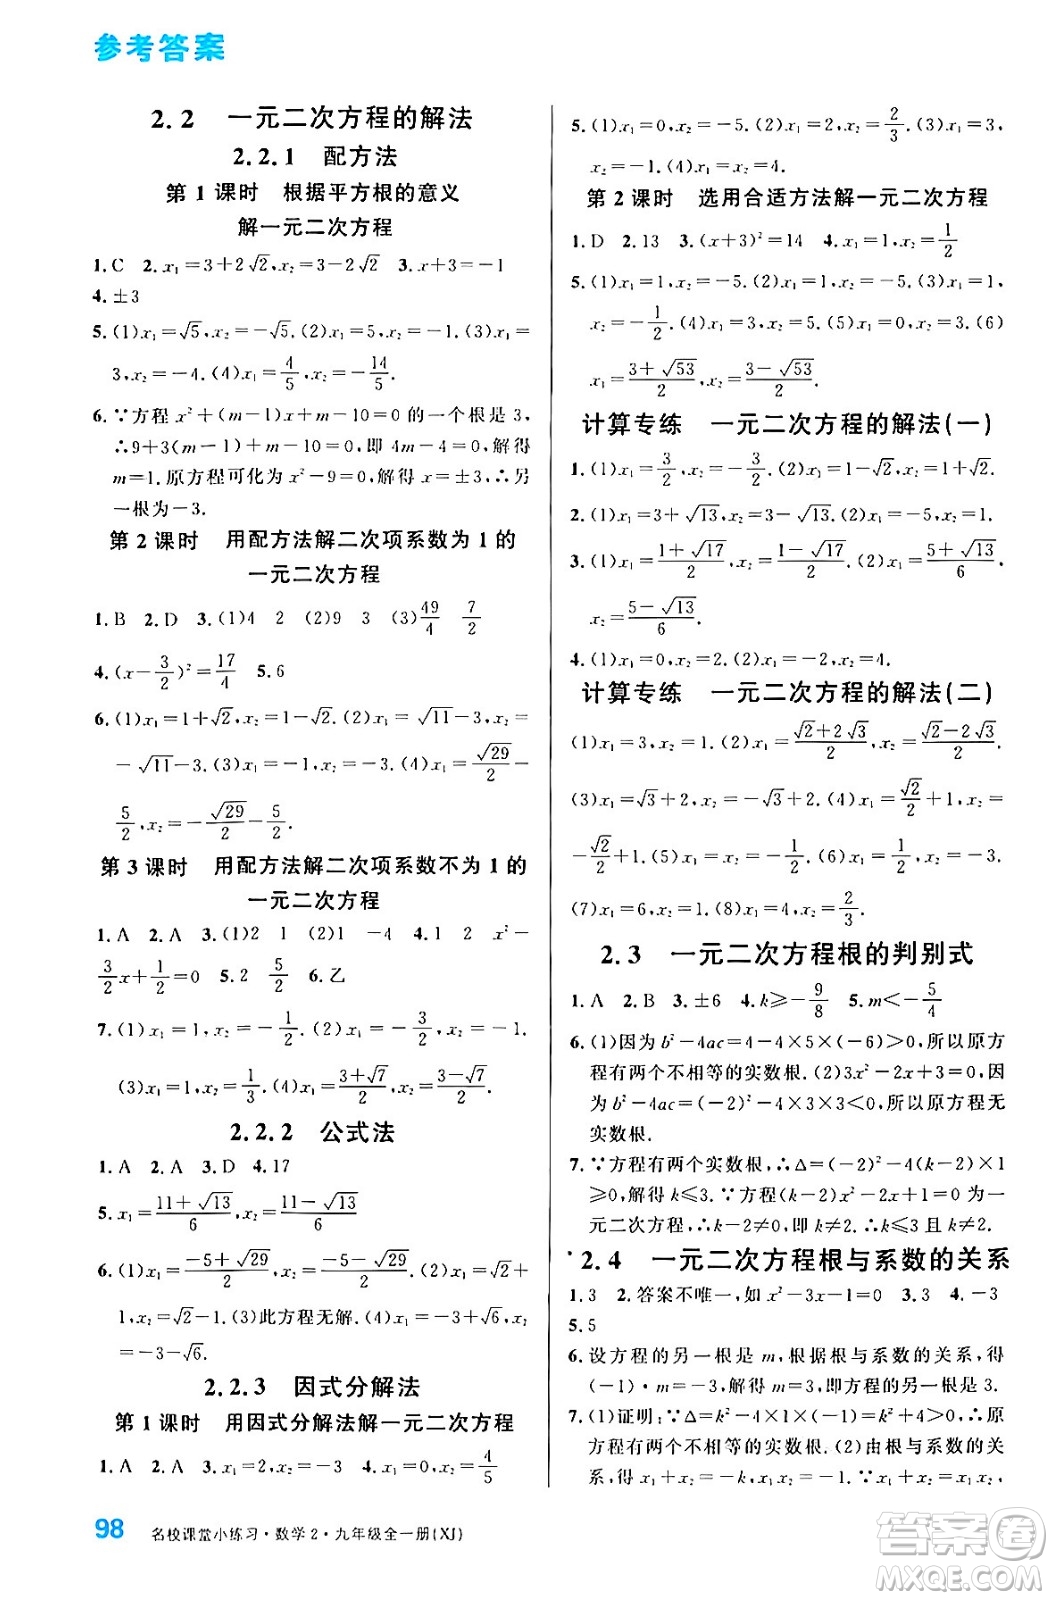 参考答案
2.2 一元二次方程的解法
2.2.1 配方法
第1课时 根据平方根的意义
解一元二次方程
1.C 2.x₁=3+2√2,x₂=3-2√2 3.x+3=-1
4.±3
5.(1)x₁=√5,x₂=-√5.(2)x₁=5,x₂=-1.(3)x₁=
3,x₂=-4.(4)x₁=4/5,x₂=-14/5.
6.∵方程 x²+(m-1)x+m-10=0 的一个根是 3,
∴9+3(m-1)+m-10=0,即 4m-4=0,解得
m=1.原方程可化为 x²-9=0,解得 x=±3,∴另
一根为-3.
第2课时 用配方法解二次项系数为1的
一元二次方程
1.B 2.D 3.(1)4 2 (2)9 3 (3)49/4 7/2
4.(x-3/2)²=17/4 5.6
6.(1)x₁=1+√2,x₂=1-√2.(2)x₁=√11-3,x₂=
-√11-3.(3)x₁=5,x₂=-1.(4)x₁=√29/2-
5/2,x₂=-√29/2-5/2.
第3课时 用配方法解二次项系数不为1的
一元二次方程
1.A 2.A 3.(1)2 1 (2)1 -4 4.1 2 x²-
3/2x+1/2=0 5.2 5/2 6.乙
7.(1)x₁=1,x₂=-1/2.(2)x₁=-3/2,x₂=-1.
(3)x₁=2,x₂=1/3.(4)x₁=(3+√7)/2,x₂=(3-√7)/2.
2.2.2 公式法
1.A 2.A 3.D 4.17
5.x₁=(11+√13)/6,x₂=(11-√13)/6
6.(1)x₁=(-5+√29)/2,x₂=(-5-√29)/2.(2)x₁=√2+
1,x₂=√2-1.(3)此方程无解.(4)x₁=-3+√6,x₂=
-3-√6.
2.2.3 因式分解法
第1课时 用因式分解法解一元二次方程
1.A 2.A 3.x₁=2,x₂=-3 4.x₁=0,x₂=4/5
5.(1)x₁=0,x₂=-5.(2)x₁=2,x₂=2/3.(3)x₁=3,
x₂=-1.(4)x₁=x₂=4.
第2课时 选用合适方法解一元二次方程
1.D 2.13 3.(x+3)²=14 4.x₁=1,x₂=1/2
5.(1)x₁=1,x₂=-5.(2)x₁=1,x₂=-5.(3)x₁=1,
x₂=-1/2.(4)x₁=3,x₂=5.(5)x₁=0,x₂=3.(6)
x₁=(3+√53)/2,x₂=(3-√53)/2.
计算专练 一元二次方程的解法(一)
1.(1)x₁=3/2,x₂=-3/2.(2)x₁=1-√2,x₂=1+√2.
2.(1)x₁=3+√13,x₂=3-√13.(2)x₁=5,x₂=1.
3.(1)x₁=(1+√17)/2,x₂=(1-√17)/2.(2)x₁=(5+√13)/6,
x₂=(5-√13)/6.
4.(1)x₁=0,x₂=2.(2)x₁=2,x₂=4.
计算专练 一元二次方程的解法(二)
(1)x₁=3,x₂=1.(2)x₁=(√2+2√3)/2,x₂=(√2-2√3)/2.
(3)x₁=√3+2,x₂=-√3+2.(4)x₁=√2/2+1,x₂=
-√2/2+1.(5)x₁=2,x₂=-1/2.(6)x₁=1,x₂=-3.
(7)x₁=6,x₂=-1.(8)x₁=2,x₂=2/3.
2.3 一元二次方程根的判别式
1.A 2.B 3.±6 4.k≥-9/8 5.m<-5/4
6.(1)因为 b²-4ac=4-4×5×(-6)>0,所以原方
程有两个不相等的实数根.(2)3x²-2x+3=0,因
为 b²-4ac=(-2)²-4×3×3<0,所以原方程无
实数根.
7.∵方程有两个实数根,∴Δ=(-2)²-4(k-2)×1
≥0,解得 k≤3.∵方程(k-2)x²-2x+1=0 为一
元二次方程,∴k-2≠0,即 k≠2.∴k≤3 且 k≠2.
2.4 一元二次方程根与系数的关系
1.3 2.答案不唯一,如 x²-3x-1=0 3.3 4.-3
5.5
6.设方程的另一根是 m,根据根与系数的关系,得
(-1)·m=-3,解得 m=3.即方程的另一根是 3.
7.(1)证明:∵Δ=k²-4×1×(-1)=k²+4>0,∴原
方程有两个不相等的实数根.(2)由根与系数的关
系,得 x₁+x₂=-k,x₁x₂=-1.∵x₁+x₂=x₁x₂,
98 名校课堂小练习·数学2·九年级全一册(XJ)
答案圈
MXQE.COM